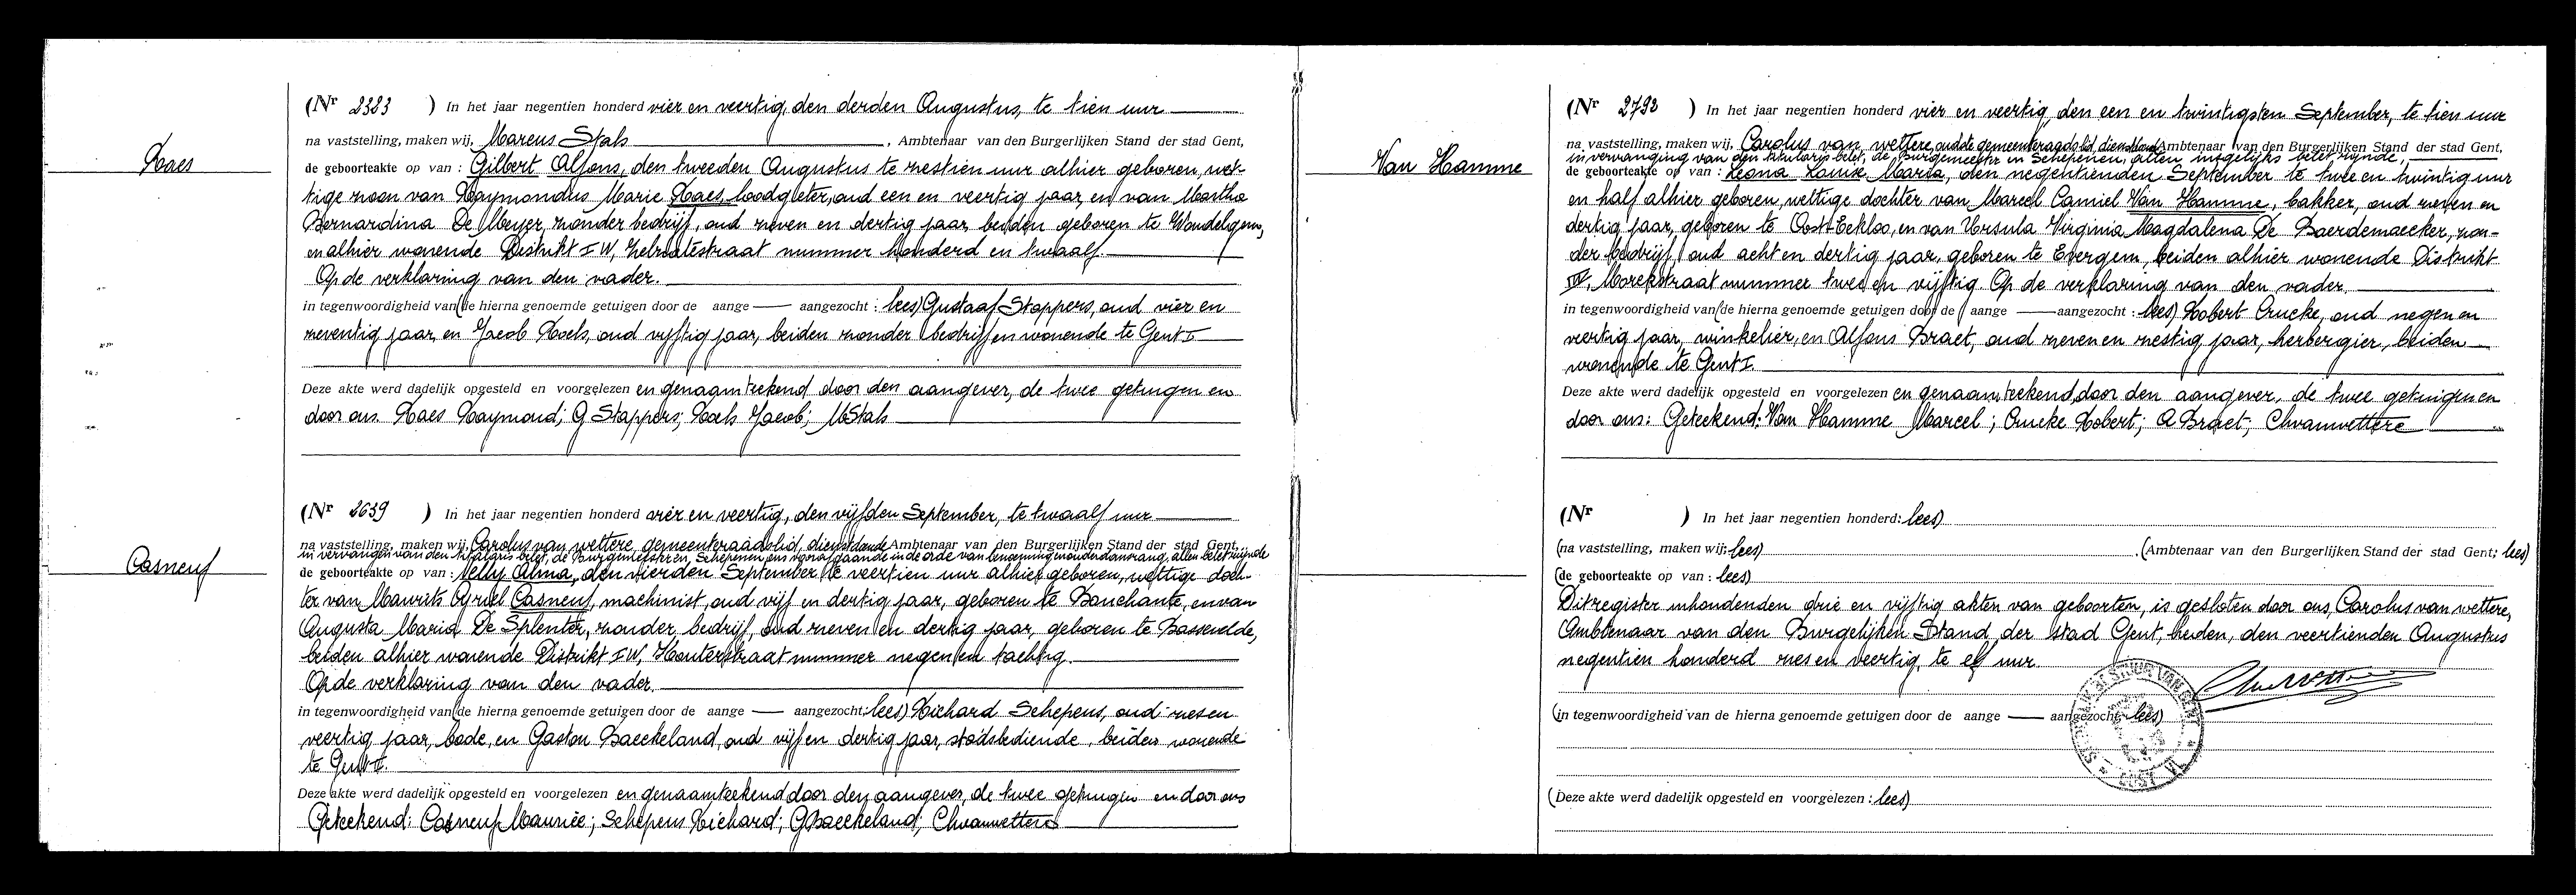 Raes
(Nr 2383 ) In het jaar negentien honderd vier en veertig, den derden Augustus, te tien uur
na vaststelling, maken wij, Marcus Stals, Ambtenaar van den Burgerlijken Stand der stad Gent,
de geboorteakte op van : Gilbert Alfons, den tweeden Augustus te zestien uur alhier geboren, wet-
tige zoon van Raymondus Marie Raes, loodgieter, oud een en veertig jaar, en van Martha
Bernardina De Meyer, zonder bedrijf, oud zeven en dertig jaar, beiden geboren te Wondelgem,
en alhier wonende Distrikt I W, nummer honderd en twaalf.
Op de verklaring van den vader.
in tegenwoordigheid van (de hierna genoemde getuigen door de aange — aangezocht : lees) Gustaaf Stappers, oud vier en
zeventig jaar, en Jacob Roels, oud vijftig jaar, beiden zonder bedrijf en wonende te Gent I
Deze akte werd dadelijk opgesteld en voorgelezen en genaamteekend door den aangever, de twee getuigen en
door ons. Raes Raymond; G Stappers; Roels Jacob; MStals
Casneuf
(Nr 2639 ) In het jaar negentien honderd vier en veertig, den vijfden September, te twaalf uur
na vaststelling, maken wij, Carolus van wettere, gemeenteraadslid, dienstdoende Ambtenaar van den Burgerlijken Stand der stad Gent,
in vervanging van den titularis belet, de Burgemeester en Schepenen, allen belet zijnde
de geboorteakte op van : Nelly Alma, den vierden September te veertien uur alhier geboren, wettige doch-
ter van Maurits Cyriel Casneuf, machinist, oud vijf en dertig jaar, geboren te Bouchaute, en van
Augusta Maria De Splenter, zonder bedrijf, oud zeven en dertig jaar, geboren te Bassevelde,
beiden alhier wonende Distrikt I W, Houterstraat nummer negen en tachtig.
Op de verklaring van den vader.
in tegenwoordigheid van (de hierna genoemde getuigen door de aange — aangezocht: lees) Richard Schepens, oud zes en
veertig jaar, bode, en Gaston Baeckeland, oud vijf en dertig jaar, stadsbediende, beiden wonende
te Gent I.
Deze akte werd dadelijk opgesteld en voorgelezen en genaamteekend door den aangever, de twee getuigen en door ons
Geteekend: Casneuf Maurice; Schepens Richard; GBaeckeland; Chvanwettere
Van Hamme
(Nr 2793 ) In het jaar negentien honderd vier en veertig, den een en twintigsten September, te tien uur
na vaststelling, maken wij, Carolus van wettere, oudste gemeenteraadslid, dienstdoend Ambtenaar van den Burgerlijken Stand der stad Gent,
in vervanging van den titularis belet, de Burgemeester en Schepenen, allen insgelijks belet zijnde,
de geboorteakte op van : Leona Louise Maria, den negentienden September te twee en twintig uur
en half alhier geboren, wettige dochter van Marcel Camiel Van Hamme, bakker, oud zeven en
dertig jaar, geboren te Oost-Eekloo, en van Ursula Virginia Magdalena De Baerdemaecker, zon-
der bedrijf, oud acht en dertig jaar, geboren te Evergem, beiden alhier wonende Distrikt
IV, Morekstraat nummer twee en vijftig. Op de verklaring van den vader.
in tegenwoordigheid van (de hierna genoemde getuigen door de aange — aangezocht : lees) Robert Crucke, oud negen en
veertig jaar, winkelier, en Alfons Braet, oud zeven en zestig jaar, herbergier, beiden
wonende te Gent I.
Deze akte werd dadelijk opgesteld en voorgelezen en genaamteekend door den aangever, de twee getuigen en
door ons: Geteekend: Van Hamme Marcel; Crucke Robert; A Braet; Chvanwettere
(Nr ) In het jaar negentien honderd: lees)
(na vaststelling, maken wij; lees) . (Ambtenaar van den Burgerlijken Stand der stad Gent; lees)
(de geboorteakte op van : lees)
Dit register inhoudenden drie en vijftig akten van geboorten, is gesloten door ons, Carolus van wettere,
Ambtenaar van den Burgelijken Stand der stad Gent, heden, den veertienden Augustus
negentien honderd zes en veertig, te elf uur.
(in tegenwoordigheid van de hierna genoemde getuigen door de aange — aangezocht: lees)
(Deze akte werd dadelijk opgesteld en voorgelezen : lees)